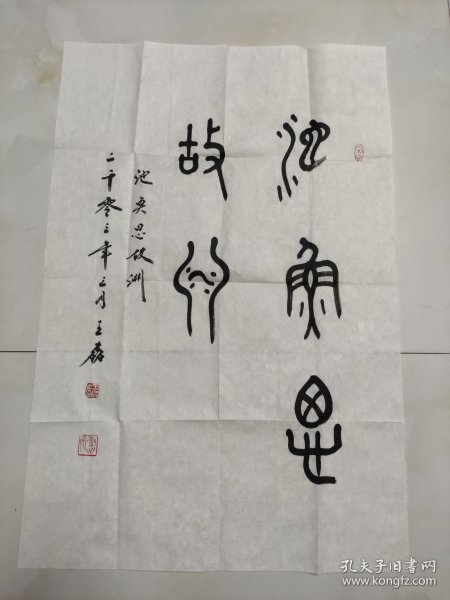 池鱼思
故洲
池奂思故洲
二千零三年三月王
孔夫子旧书网
www.kongfz.com